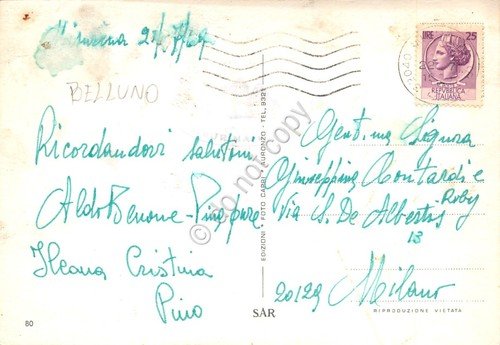 Misurina 21/7/69
BELLUNO
Ricordandovi salutoni
Aldo Benone - Pinuppare
Ileana Cristina
Pino
80
EDIZIONI FOTO CARBI AURONZO - TEL. 9321
SAR
LIRE 25
REPVBBLICA
ITALIANA
Gent.ma Signora
Giuseppina Montardi e
Roby
Via S. De Albertis
13
20129 Milano
RIPRODUZIONE VIETATA
do not copy